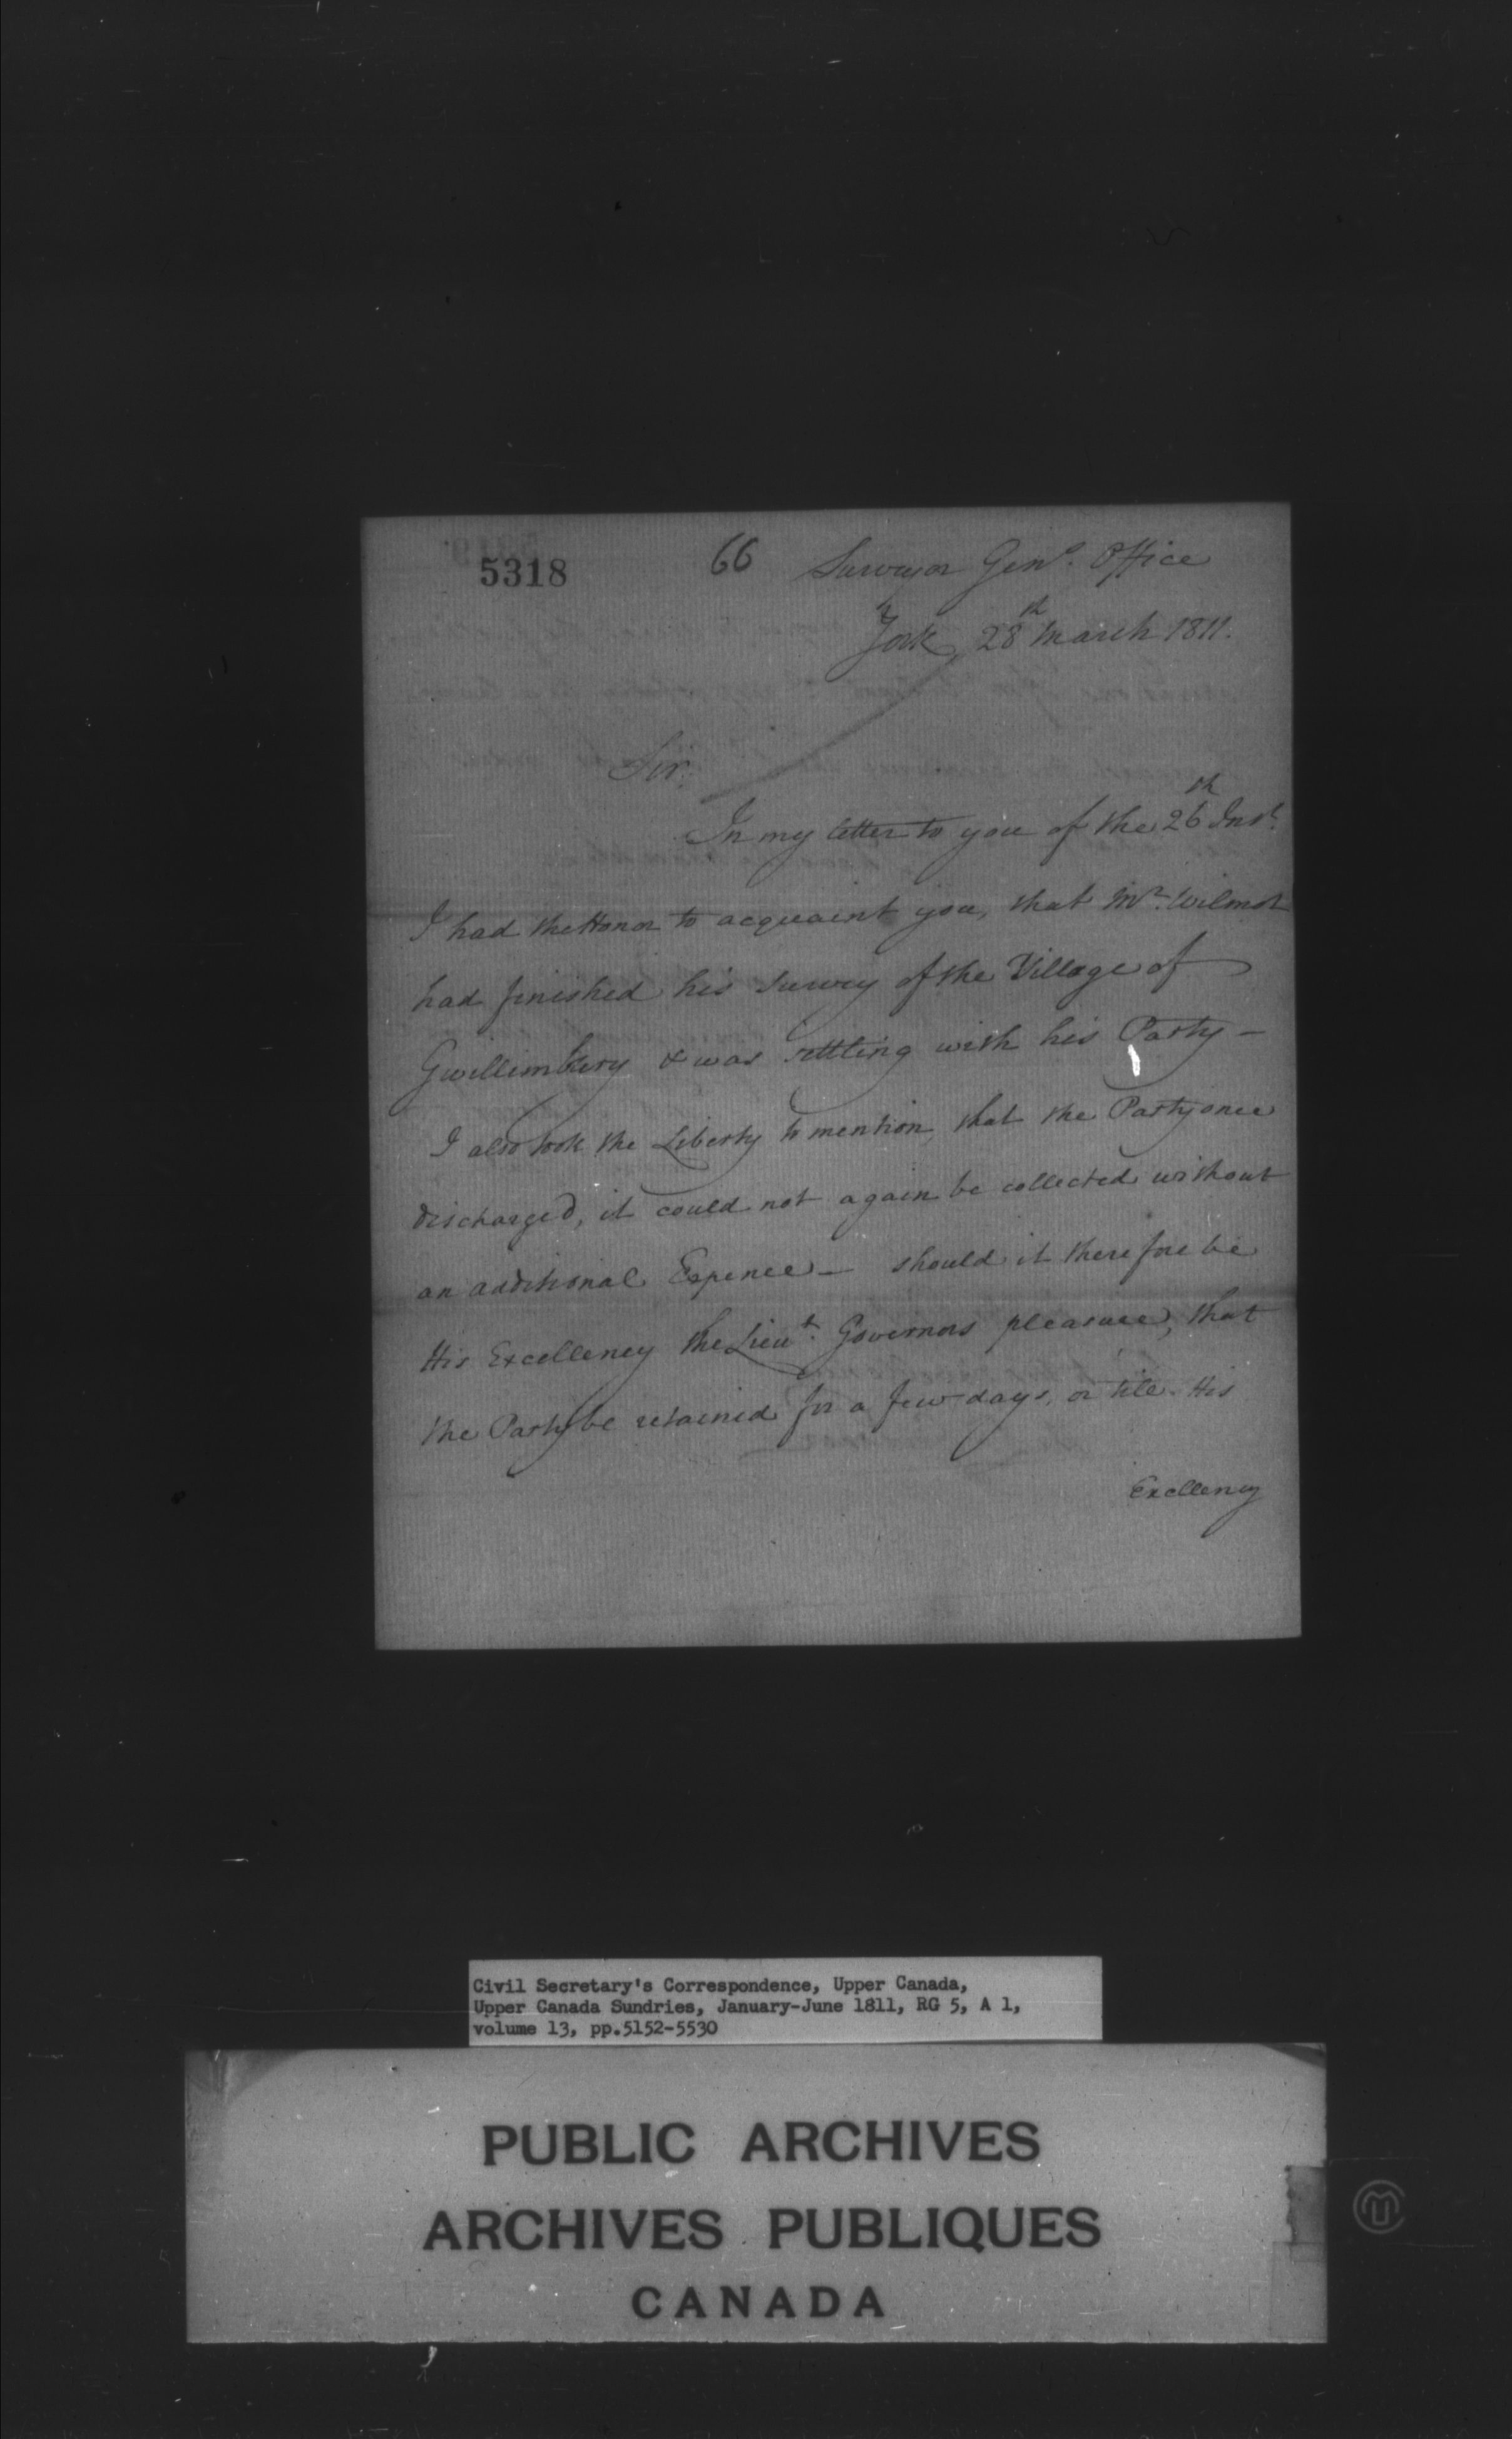 5318
66
Surveyor Genl. Office
York, 28th March 1811.
Sir.
In my letter to you of the 26th Inst.
I had the Honor to acquaint you, that Mr. Wilmot
had finished his Survey of the Village of
Gwillimbury & was settling with his Party —
I also took the Liberty to mention, that the Party once
discharged, it could not again be collected without
an additional Expence — should it therefore be
His Excellency the Lieut. Governors pleasure, that
the Party be retained for a few days, or till His
Excellency
Civil Secretary's Correspondence, Upper Canada,
Upper Canada Sundries, January-June 1811, RG 5, A 1,
volume 13, pp.5152-5530
PUBLIC ARCHIVES
ARCHIVES PUBLIQUES
CANADA